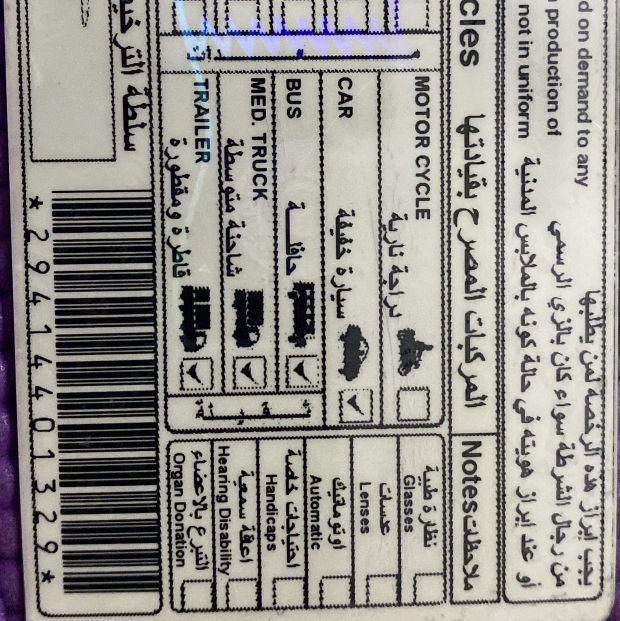 يجب ابراز هذه الرخصة لمن يطلبها
من رجال الشرطة سواء كان بالزي الرسمي
أو عند ابراز هويته في حالة كونه بالملابس المدنية
d on demand to any
production of
not in uniform
cles المركبات المصرح بقيادتها
Notes ملاحظات
MOTOR CYCLE دراجة نارية
CAR سيارة خفيفة
BUS حافلة
MED. TRUCK شاحنة متوسطة
TRAILER قاطرة ومقطورة
نظارة طبية
Glasses
عدسات
Lenses
اوتوماتيك
Automatic
احتياجات خاصة
Handicaps
اعاقة سمعية
Hearing Disability
التبرع بالاعضاء
Organ Donation
سلطة الترخيص
*29414401329*